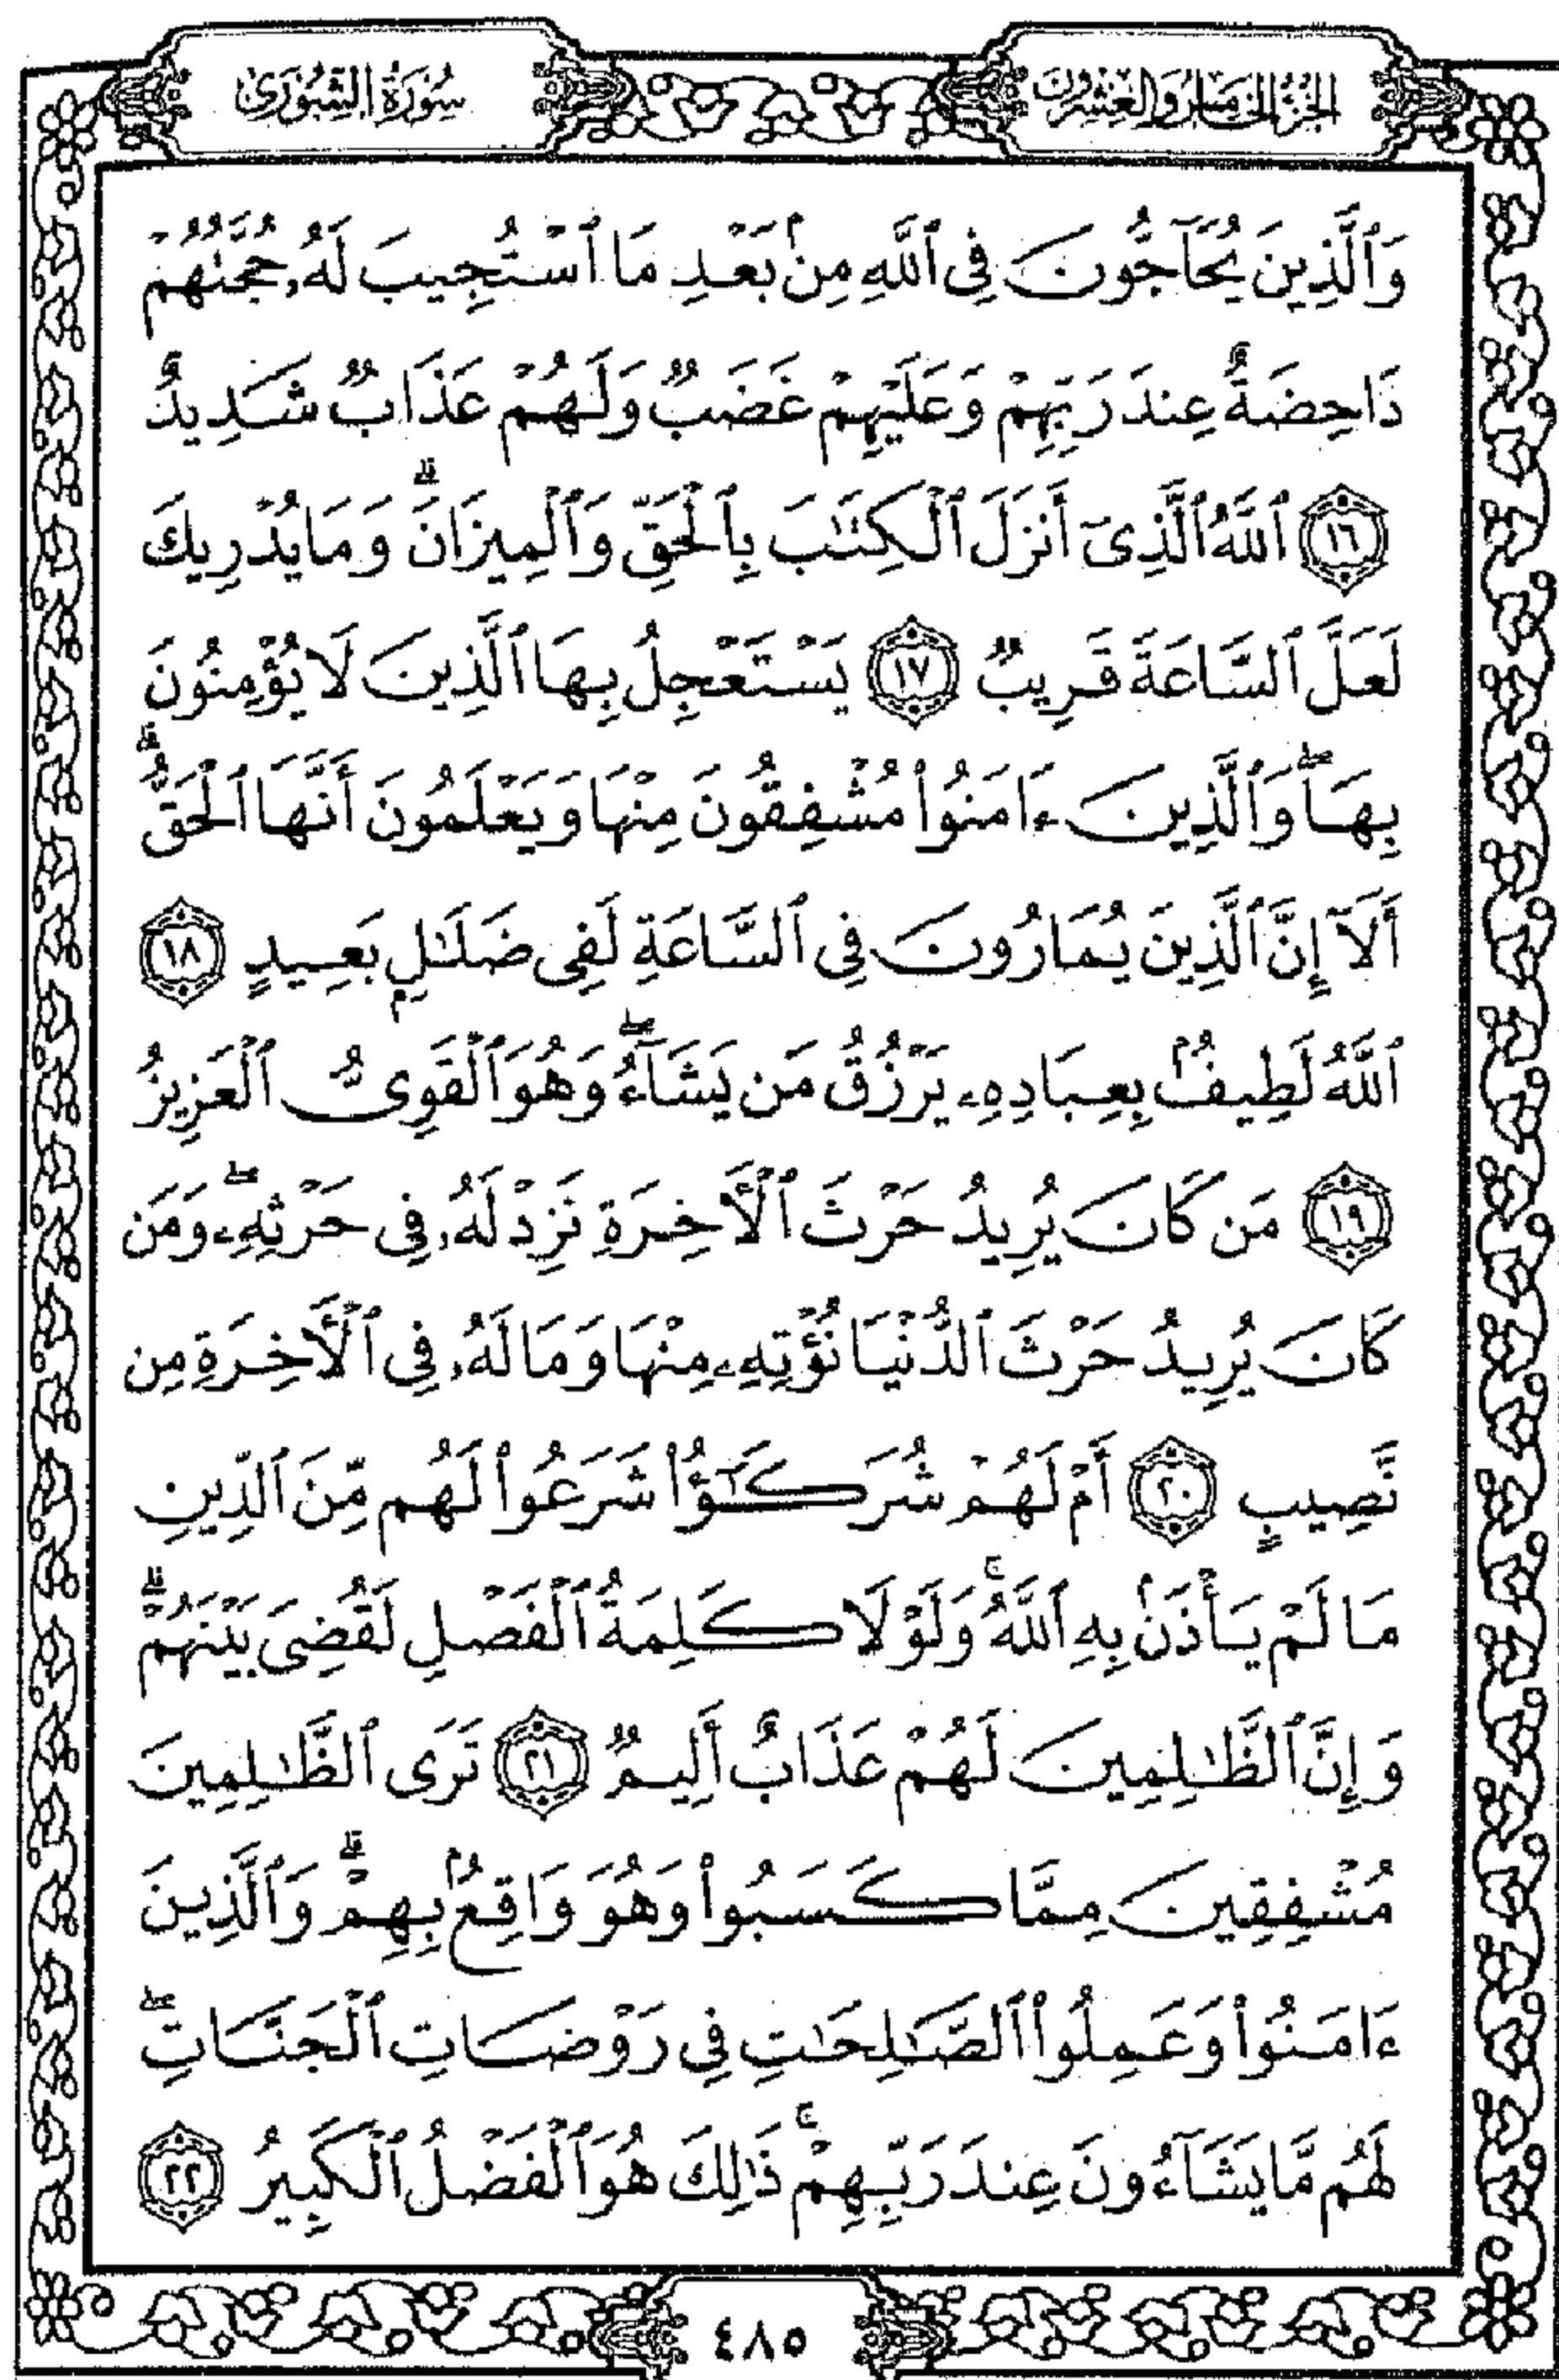 الجزء الخامس والعشرون
سورة الشورى
وَٱلَّذِينَ يُحَآجُّونَ فِى ٱللَّهِ مِنۢ بَعْدِ مَا ٱسْتُجِيبَ لَهُۥ حُجَّتُهُمْ
دَاحِضَةٌ عِندَ رَبِّهِمْ وَعَلَيْهِمْ غَضَبٌ وَلَهُمْ عَذَابٌ شَدِيدٌ
۝١٦ ٱللَّهُ ٱلَّذِىٓ أَنزَلَ ٱلْكِتَٰبَ بِٱلْحَقِّ وَٱلْمِيزَانَ ۗ وَمَا يُدْرِيكَ
لَعَلَّ ٱلسَّاعَةَ قَرِيبٌ ۝١٧ يَسْتَعْجِلُ بِهَا ٱلَّذِينَ لَا يُؤْمِنُونَ
بِهَا ۖ وَٱلَّذِينَ ءَامَنُوا۟ مُشْفِقُونَ مِنْهَا وَيَعْلَمُونَ أَنَّهَا ٱلْحَقُّ ۗ
أَلَآ إِنَّ ٱلَّذِينَ يُمَارُونَ فِى ٱلسَّاعَةِ لَفِى ضَلَٰلٍۭ بَعِيدٍ ۝١٨
ٱللَّهُ لَطِيفٌۢ بِعِبَادِهِۦ يَرْزُقُ مَن يَشَآءُ ۖ وَهُوَ ٱلْقَوِىُّ ٱلْعَزِيزُ
۝١٩ مَن كَانَ يُرِيدُ حَرْثَ ٱلْأَخِرَةِ نَزِدْ لَهُۥ فِى حَرْثِهِۦ ۖ وَمَن
كَانَ يُرِيدُ حَرْثَ ٱلدُّنْيَا نُؤْتِهِۦ مِنْهَا وَمَا لَهُۥ فِى ٱلْأَخِرَةِ مِن
نَّصِيبٍ ۝٢٠ أَمْ لَهُمْ شُرَكَٰٓؤُا۟ شَرَعُوا۟ لَهُم مِّنَ ٱلدِّينِ
مَا لَمْ يَأْذَنۢ بِهِ ٱللَّهُ ۚ وَلَوْلَا كَلِمَةُ ٱلْفَصْلِ لَقُضِىَ بَيْنَهُمْ ۗ
وَإِنَّ ٱلظَّٰلِمِينَ لَهُمْ عَذَابٌ أَلِيمٌ ۝٢١ تَرَى ٱلظَّٰلِمِينَ
مُشْفِقِينَ مِمَّا كَسَبُوا۟ وَهُوَ وَاقِعٌۢ بِهِمْ ۗ وَٱلَّذِينَ
ءَامَنُوا۟ وَعَمِلُوا۟ ٱلصَّٰلِحَٰتِ فِى رَوْضَاتِ ٱلْجَنَّاتِ ۖ
لَهُم مَّا يَشَآءُونَ عِندَ رَبِّهِمْ ۚ ذَٰلِكَ هُوَ ٱلْفَضْلُ ٱلْكَبِيرُ ۝٢٢
٤٨٥